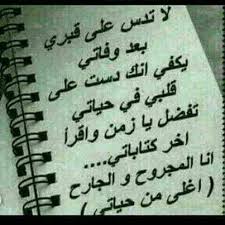 لا تدس على قبري
بعد وفاتي
يكفي انك دست على
قلبي في حياتي
تفضل يا زمن واقرأ
اخر كتاباتي....
انا المجروح و الجارح
( اغلى من حياتي )